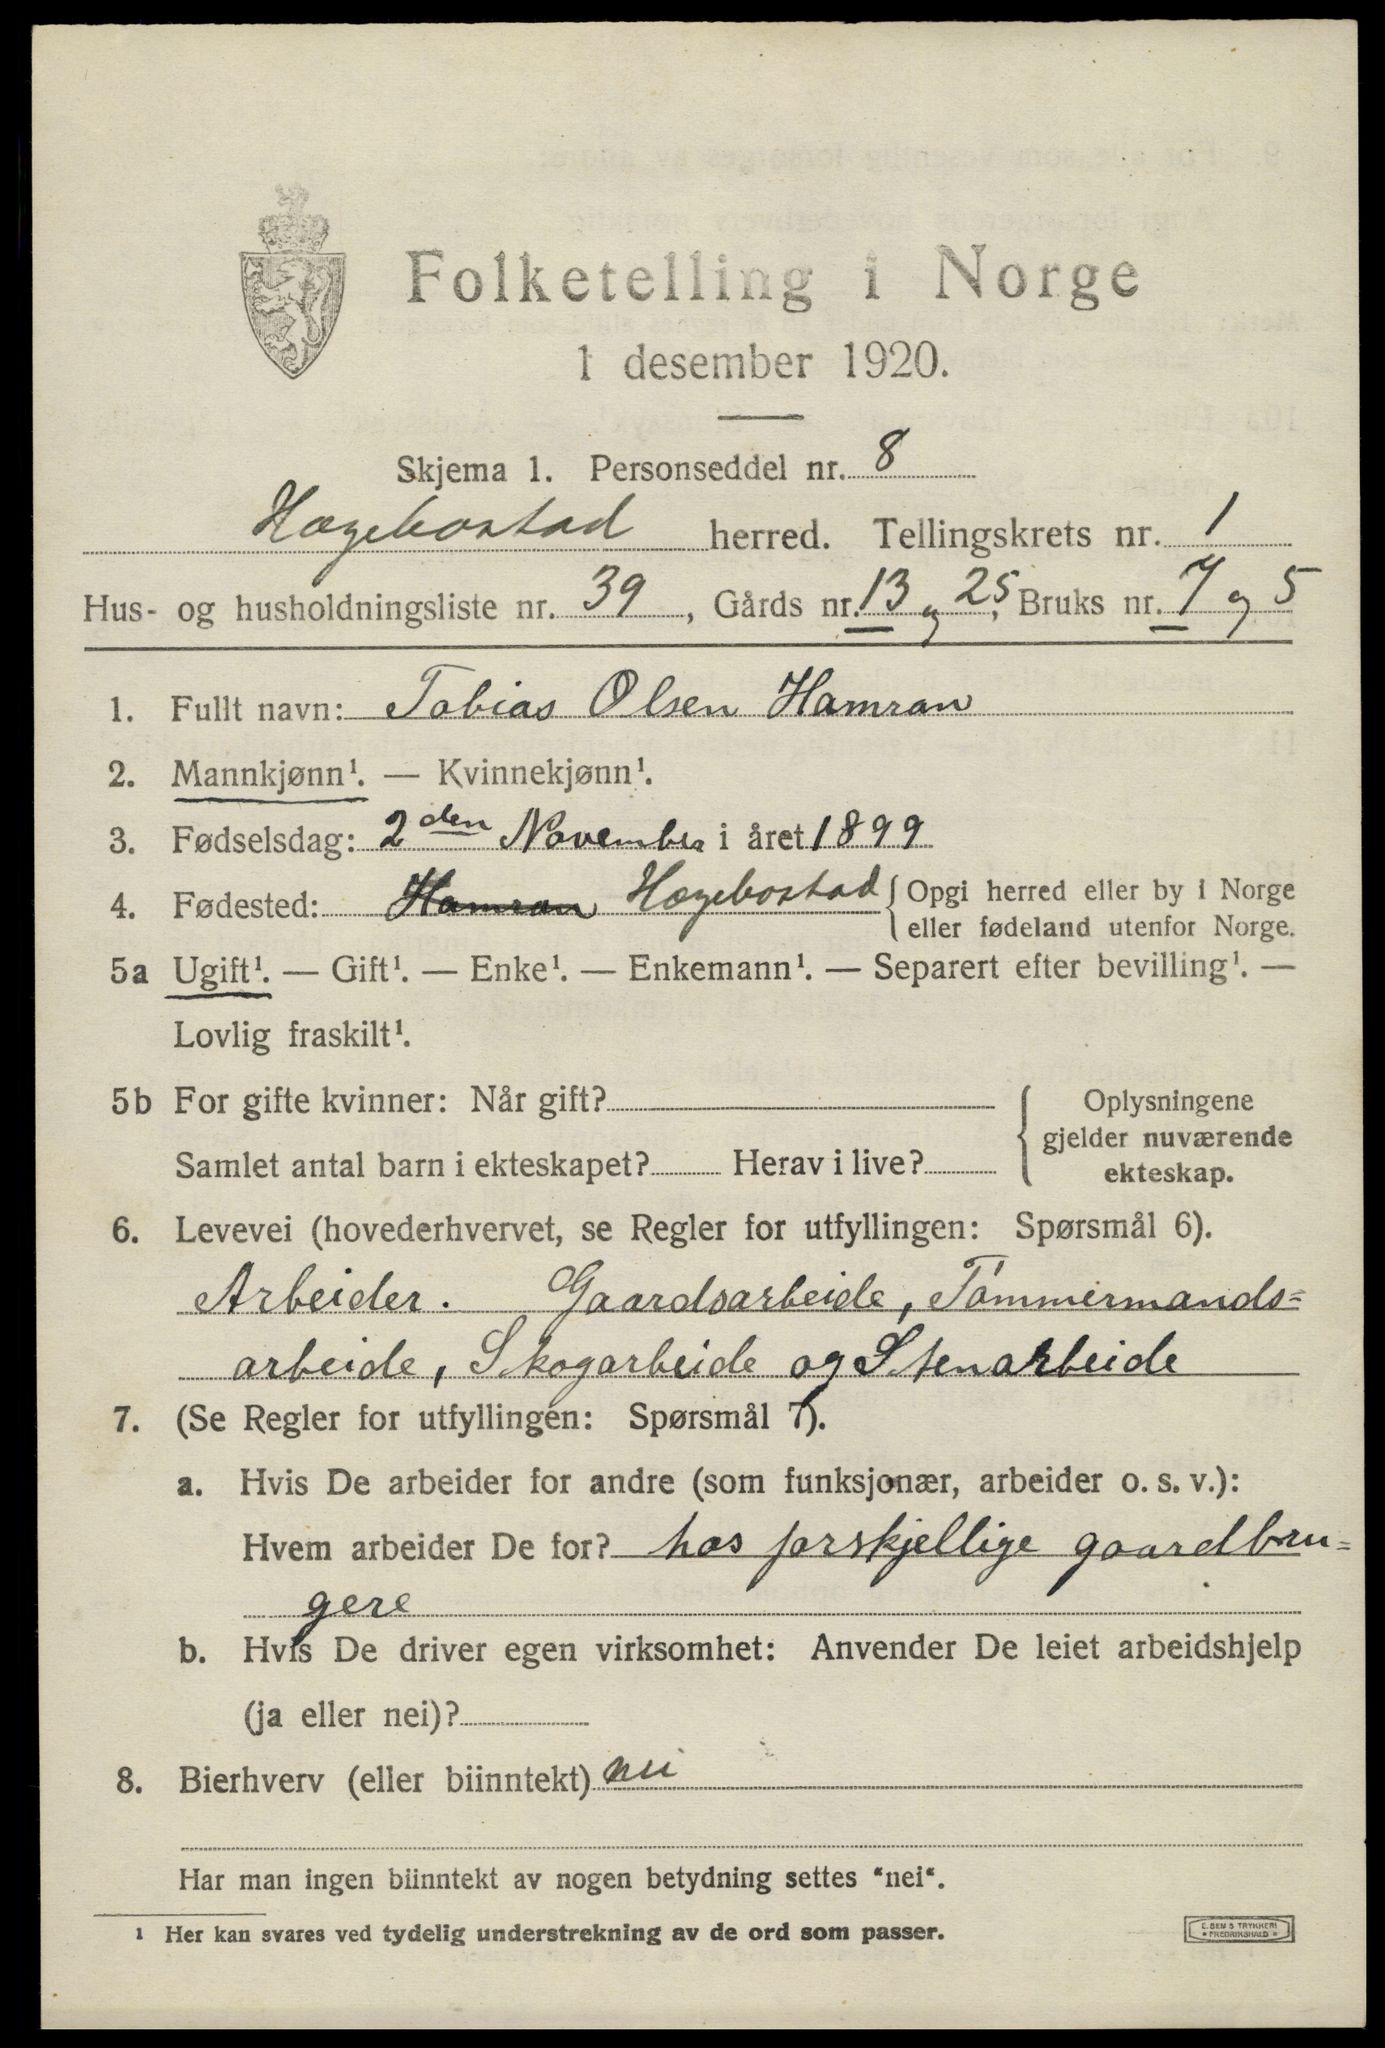 Folketelling i Norge
1 desember 1920.
Skjema 1. Personseddel nr. 8
Hægebostad herred. Tellingskrets nr. 1
Hus- og husholdningsliste nr. 39, Gårds nr. 13 og 25, Bruks nr. 7 og 5
1. Fullt navn: Tobias Olsen Hamran
2. Mannkjønn¹. — Kvinnekjønn¹.
3. Fødselsdag: 2den November i året 1899
4. Fødested: Hamran Hægebostad { Opgi herred eller by i Norge
eller fødeland utenfor Norge.
5a Ugift¹. — Gift¹. — Enke¹. — Enkemann¹. — Separert efter bevilling¹. —
Lovlig fraskilt¹.
5b For gifte kvinner: Når gift?
Samlet antal barn i ekteskapet? Herav i live?
Oplysningene
gjelder nuværende
ekteskap.
6. Levevei (hovederhvervet, se Regler for utfyllingen: Spørsmål 6).
Arbeider. Gaardsarbeide, Tømmermands=
arbeide, Skogarbeide og Stenarbeide
7. (Se Regler for utfyllingen: Spørsmål 7).
a. Hvis De arbeider for andre (som funksjonær, arbeider o. s. v.):
Hvem arbeider De for? hos forskjellige gaardbru=
gere
b. Hvis De driver egen virksomhet: Anvender De leiet arbeidshjelp
(ja eller nei)?
8. Bierhverv (eller biinntekt) nei
Har man ingen biinntekt av nogen betydning settes "nei".
¹ Her kan svares ved tydelig understrekning av de ord som passer.
E. SEM'S TRYKKERI
* FREDRIKSHALD *